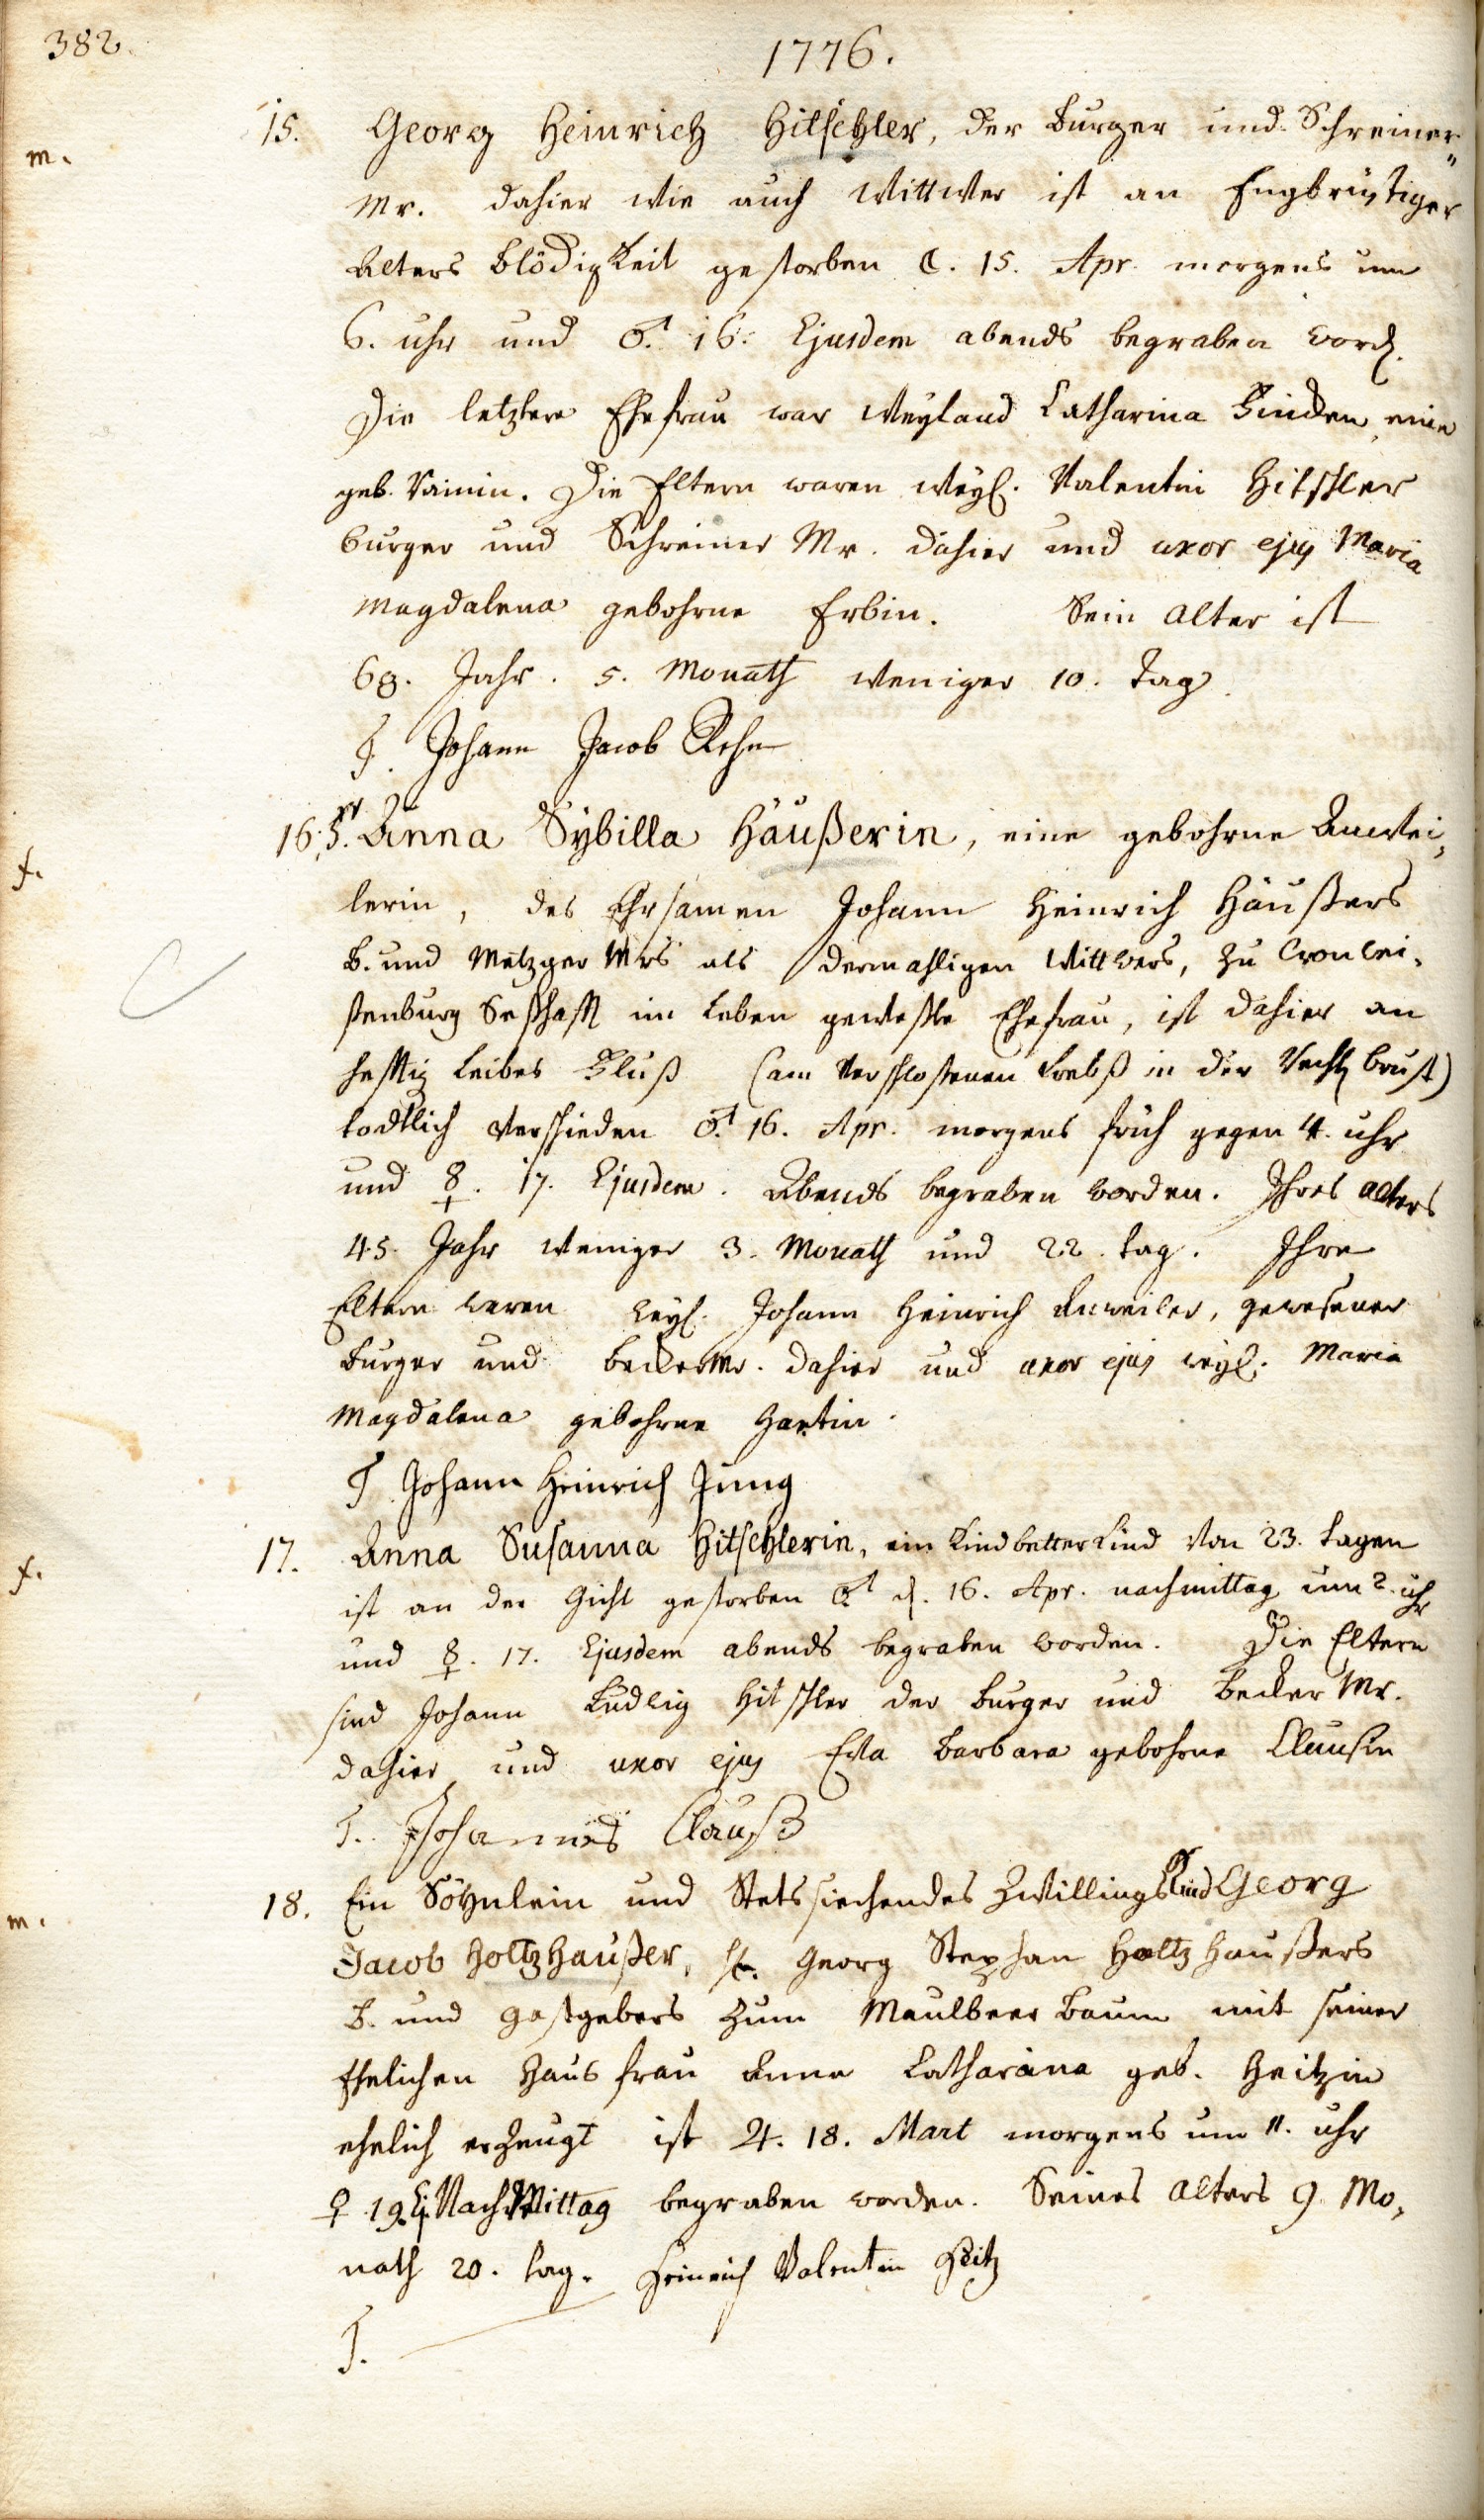 382.
1776.
15. Georg Heinrich Hitschler, der Burger und Schreiner„
m.
Mr. dahier wie auch Wittwer ist an Engbrüstiger
Alters Blödigkeit gestorben ☾. 15. Apr. morgens um
6. uhr und ♂. 16. Ejusdem abends begraben word.
Die letztere Ehefrau war Weyland Catharina Linden, eine
geb. Die Eltern waren Weyl. Valentin Hitschler
burger und Schreiner Mr. dahier und uxor ejus Maria
Magdalena gebohrne Erbin. Sein Alter ist
68. Jahr. 5. Monath weniger 10. Tag.
T. Johann Jacob
16. Anna Sÿbilla Häußerin, eine gebohrne Anwei„
f.
lerin, des Ehrsamen Johann Heinrich Häußers
B. und Metzger Mrs als dermahligen Wittwers, zu Cronwei„
ßenburg Seßhafft im Leben geweßte Ehefrau, ist dahier an
hefftig Leibes Fluß (am verschloßenen Krebß in der Recht brust)
todtlich verschieden ♂. 16. Apr. morgens früh gegen 4. uhr
und ☿. 17. Ejusdem. Abends begraben worden. Ihres alters
45. Jahr weniger 3. Monath und 22. tag. Ihre
Eltern waren weyl. Johann Heinrich Anweiler, gewesener
Burger und becker Mr. dahier und uxor ejus weyl. Maria
Magdalena gebohrne Hartin.
T. Johann Heinrich Jung
17. Anna Susanna Hitschlerin, ein Kindbetter Kind von 23. tagen
f.
ist an der Gicht gestorben ♂ d. 16. Apr. nachmittag um 2. uhr
und ☿. 17. Ejusdem abends begraben worden. Die Eltern
sind Johann Ludwig Hitschler der Burger und Becker Mr.
dahier und uxor ejus Eva Barbara gebohrne Claußin
T. Johannes Clauß
18. Ein Söhnlein und Stets siechendes Zwillings Kind Georg
m.
Jacob Holtzhaußer, Georg Stephan Holtzhaußers
B. und Gastgebers zum Maulbeer Baum mit seiner
Ehelichen Hausfrau Anna Catharina geb. Heitzin
ehelich erzeugt ist ♃. 18. Mart morgens um 11. uhr
♀ 19. Ej. Nach Mittag begraben worden. Seines Alters 9. Mo„
nath 20. tag. Heinrich Valentin Heitz
T.